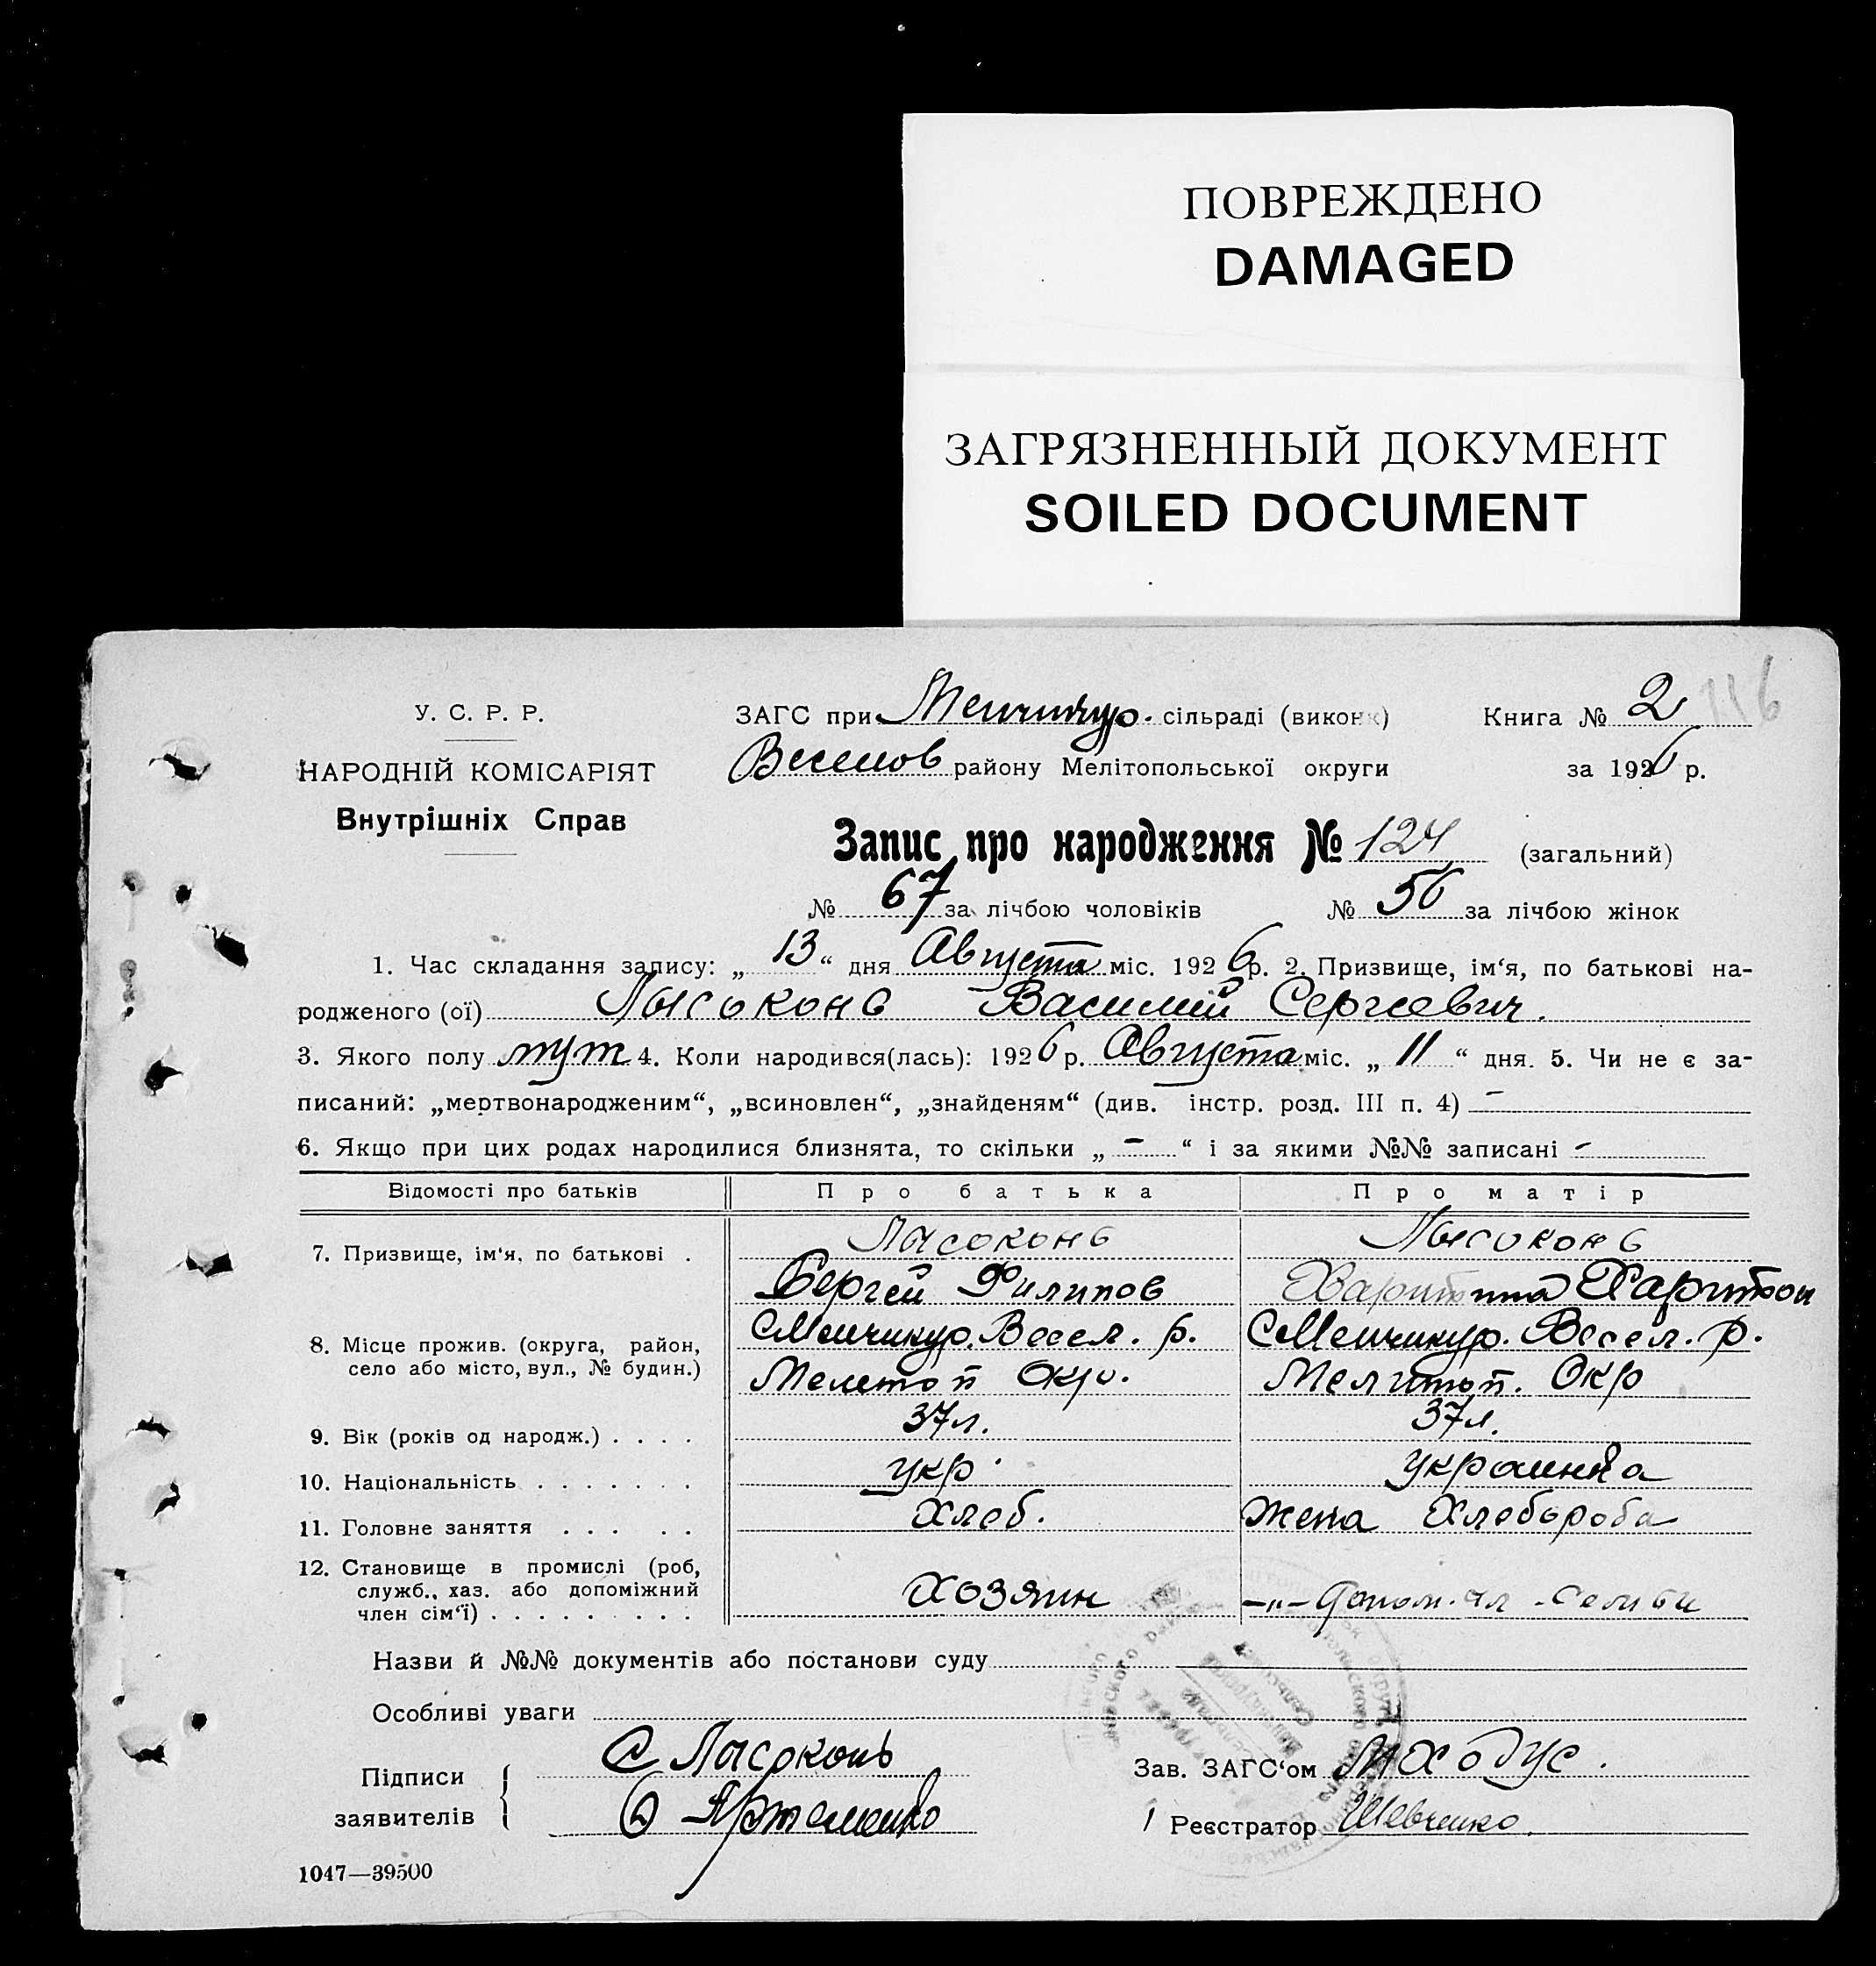 ПОВРЕЖДЕНО
DAMAGED
ЗАГРЯЗНЕННЫЙ ДОКУМЕНТ
SOILED DOCUMENT
116
У. С. Р. Р.
НАРОДНІЙ КОМІСАРІЯТ
Внутрішніх Справ
ЗАГС при Менчикур. сільраді (викон )
Книга № 2
Веселов району Мелітопольської округи
за 1926 р.
Запис про народження № 124 (загальний)
№ 67 за лічбою чоловіків № 56 за лічбою жінок
1. Час складання запису: „ 13 “ дня Августа міс. 1926 р. 2. Призвище, ім‘я, по батькові на-
родженого (ої) Лысоконь Василий Сергеевич.
3. Якого полу муж 4. Коли народився(лась): 1926 р. Августа міс. „ 11 “ дня. 5. Чи не є за-
писаний: „мертвонародженим“, „всиновлен“, „знайденям“ (див. інстр. розд. III п. 4) –
6. Якщо при цих родах народилися близнята, то скільки „ – “ і за якими №№ записані –
Відомості про батьків Про батька Про матір
7. Призвище, ім‘я, по батькові . Лысоконь Лысоконь
Сергей Филипов Харитина Харитон
8. Місце прожив. (округа, район, село або місто, вул., № будин.) С Менчикур. Весел. р. С Менчикур. Весел. р.
Мелетоп Окр. Мелитоп. Окр
9. Вік (років од народж.) . . . . 37 л. 37 л.
10. Національність . . . . . . . укр. украинка
11. Головне заняття . . . . . Хлеб. жена Хлебороба
12. Становище в промислі (роб, служб., хаз. або допоміжний член сім‘ї) . . . . . . . . . Хозяин –„– допом. чл. семьи
Назви й №№ документів або постанови суду
Особливі уваги
Підписи заявителів
С Лысоконь
Артеменко
Зав. ЗАГС‘ом
Реєстратор Шевченко.
1047—39500